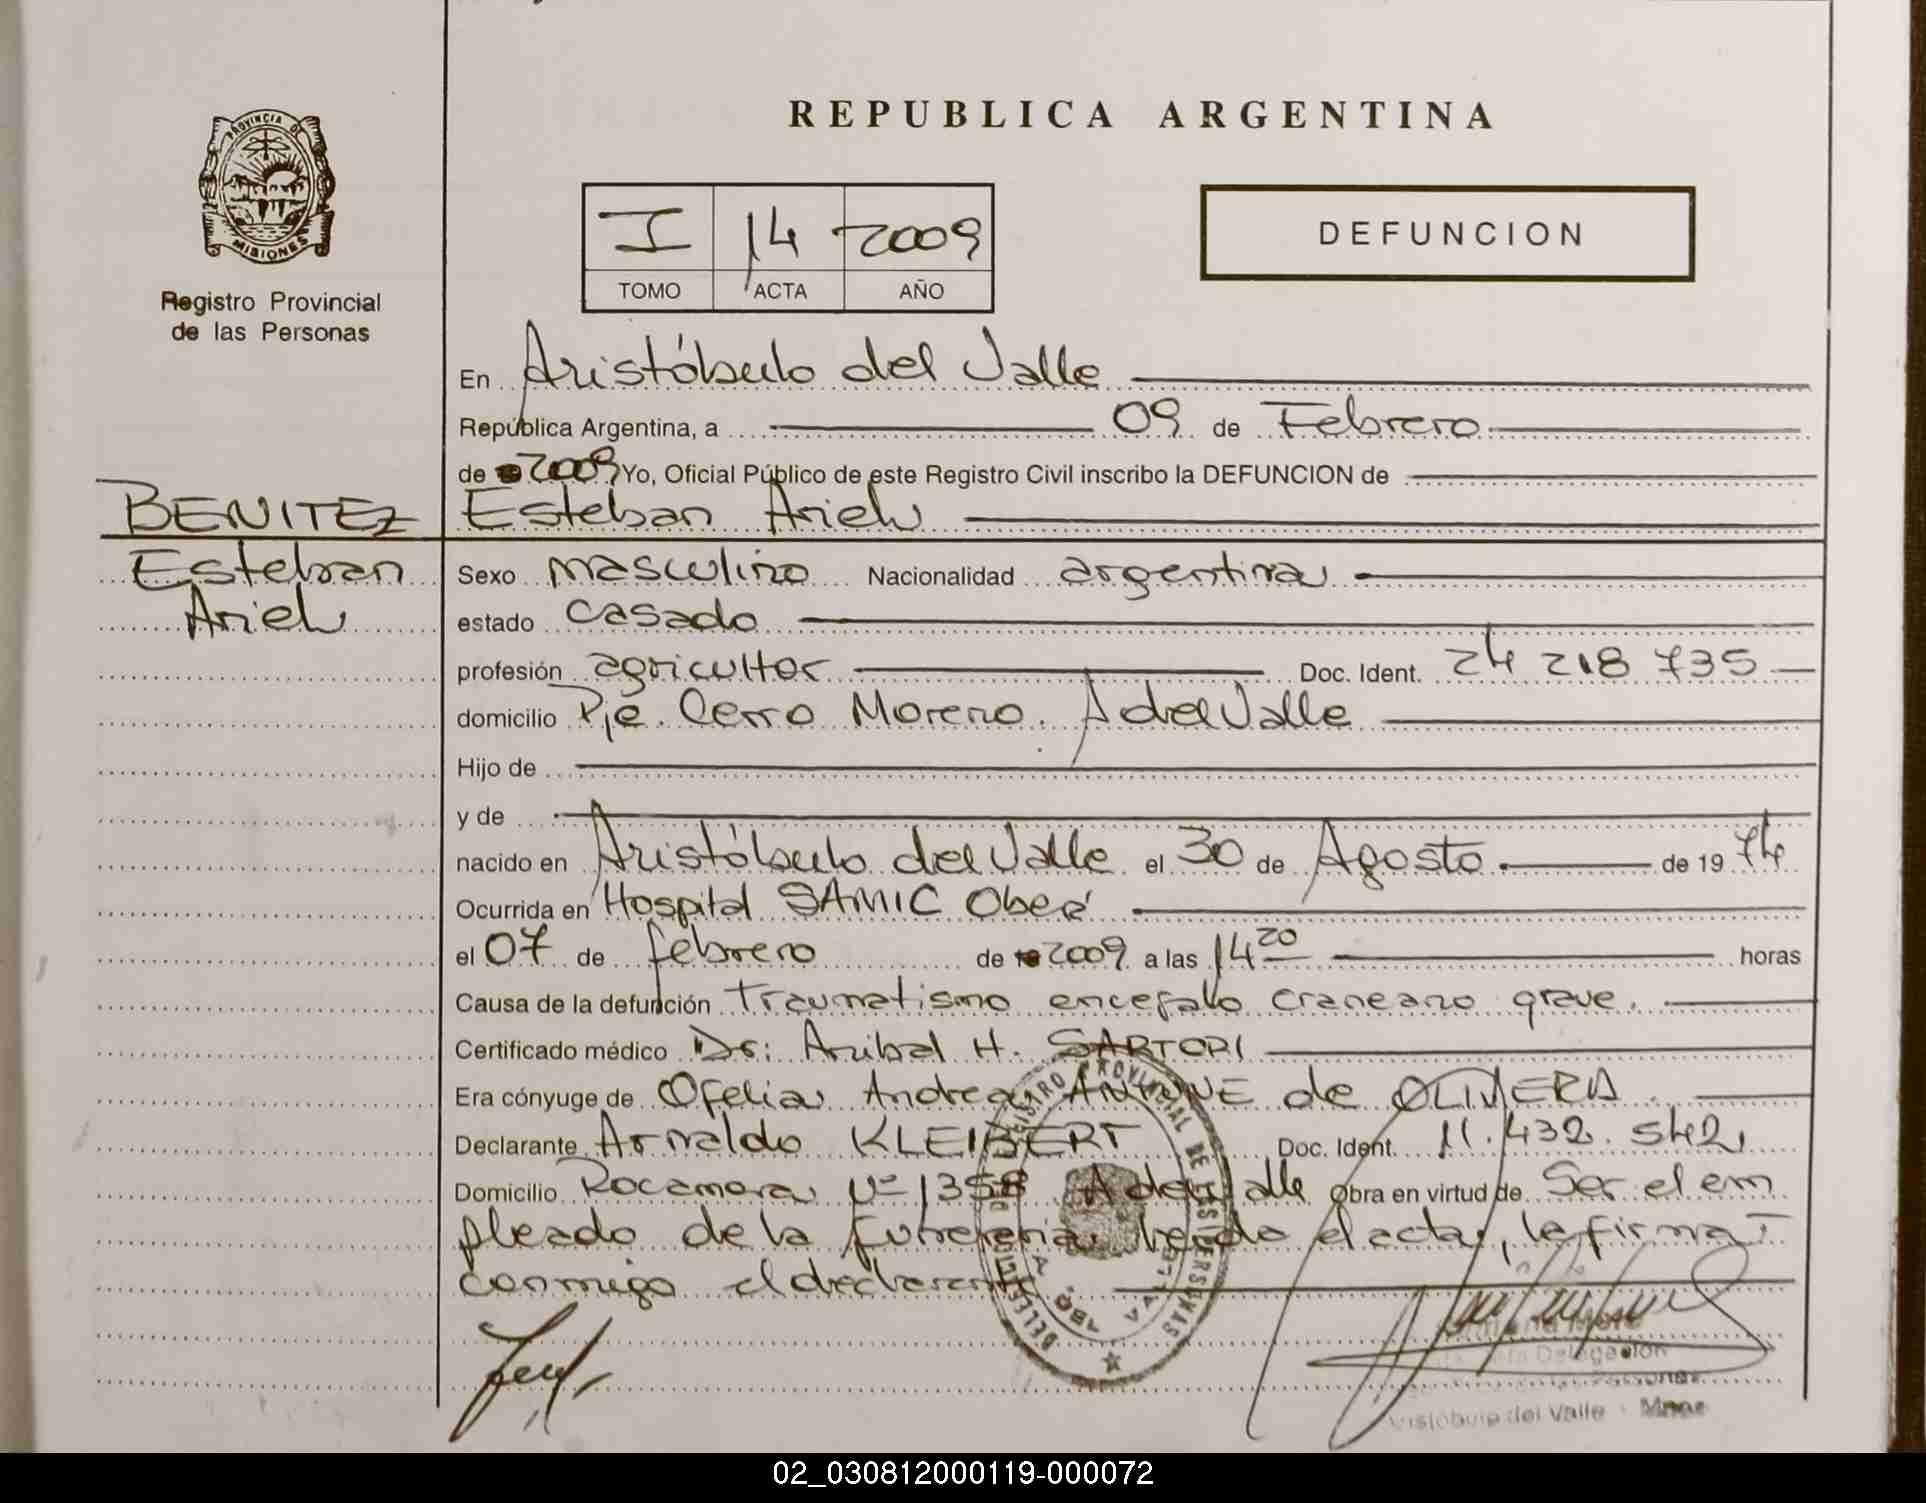 PROVINCIA DE
MISIONES
Registro Provincial
de las Personas
REPUBLICA ARGENTINA
I 14 2009
TOMO ACTA AÑO
DEFUNCION
En Aristóbulo del Valle
República Argentina, a 09 de Febrero
de 2009 Yo, Oficial Público de este Registro Civil inscribo la DEFUNCION de
BENITEZ Esteban Ariel
Esteban
Ariel
Sexo masculino Nacionalidad argentina
estado casado
profesión agricultor Doc. Ident. 24 218 735
domicilio Pje. Cerro Moreno. A del Valle
Hijo de
y de
nacido en Aristóbulo del Valle el 30 de Agosto de 1974
Ocurrida en Hospital SAMIC Oberá
el 07 de febrero de 2009 a las 14 20 horas
Causa de la defunción Traumatismo encefalo craneano grave.
Certificado médico Dr: Anibal H. SARTORI
Era cónyuge de Ofelia Andrea de OLIVERA
Declarante Arnaldo KLEIBERT Doc. Ident. 11.432.542
Domicilio Rocamora Nº 1358 A del Valle Obra en virtud de Ser el em
pleado de la funeraria leida el acta, la firma
conmigo el declarante
Delegación
Aristóbulo del Valle - Mnes
02_030812000119-000072